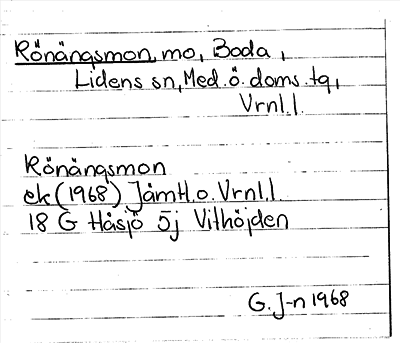 Rönängsmon, mo, Boda,
Lidens sn, Med. ö. doms. tg,
Vrnl. l.
Rönängsmon
ek (1968) Jämtl. o. Vrnl. l.
18 G Håsjö 5j Vithöjden
G. J-n 1968